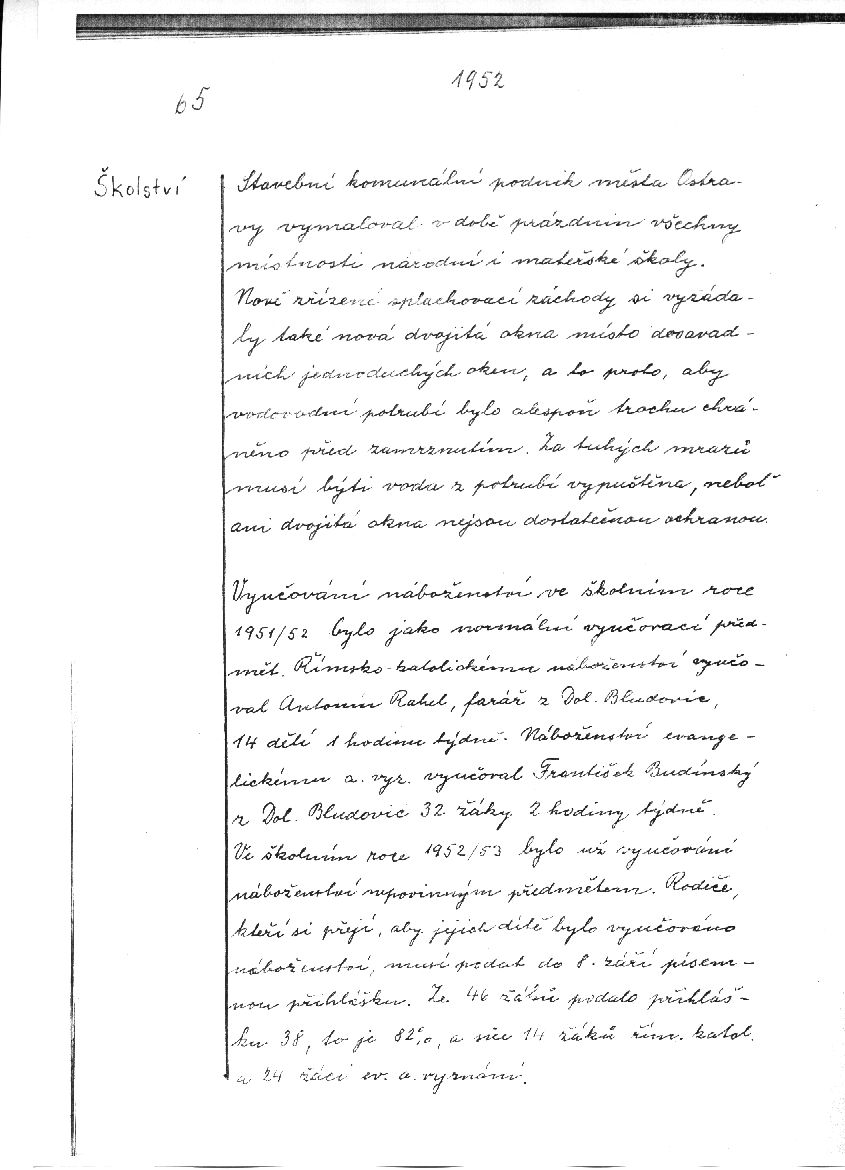 1952
65
Školství
Stavební komunální podnik města Ostra-
vy vymaloval v době prázdnin všechny
místnosti národní i mateřské školy.
Nově zřízené splachovací záchody si vyžáda-
ly také nová dvojitá okna místo dosavad-
ních jednoduchých oken, a to proto, aby
vodovodní potrubí bylo alespoň trochu chrá-
něno před zamrznutím. Za tuhých mrazů
musí býti voda z potrubí vypuštěna, neboť
ani dvojitá okna nejsou dostatečnou ochranou.
Vyučování náboženství ve školním roce
1951/52 bylo jako normální vyučovací před-
mět. Římsko-katolickému náboženství vyučo-
val Antonín Rahel, farář z Dol. Bludovic,
14 dětí 1 hodinu týdně. Náboženství evange-
lickému a. vyz. vyučoval František Budínský
z Dol. Bludovic 32 žáky 2 hodiny týdně.
Ve školním roce 1952/53 bylo už vyučování
náboženství nepovinným předmětem. Rodiče,
kteří si přejí, aby jejich dítě bylo vyučováno
náboženství, musí podat do 8. září písem-
nou přihlášku. Ze 46 žáků podalo přihláš-
ku 38, to je 82%, a sice 14 žáků řím. katol.
a 24 žáci ev. a. vyznání.